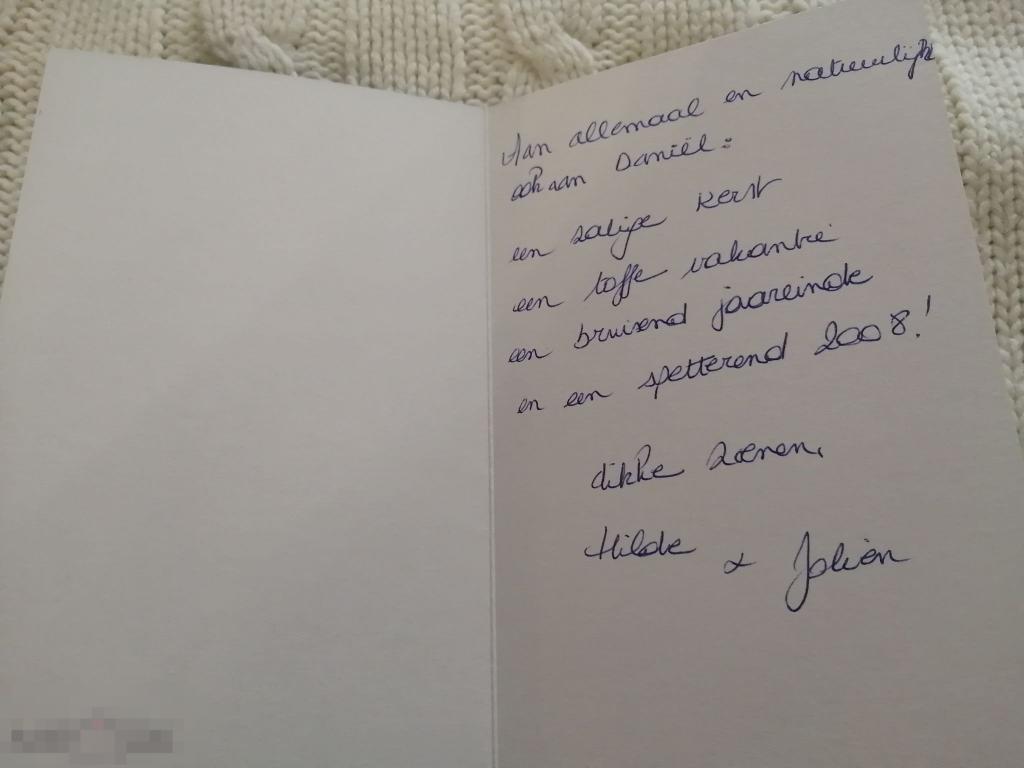 Aan allemaal en natuurlijk
ook aan Daniël:
een zalige kerst
een toffe vakantie
een bruisend jaareinde
en een spetterend 2008!
dikke zoenen,
Hilde & Jolien